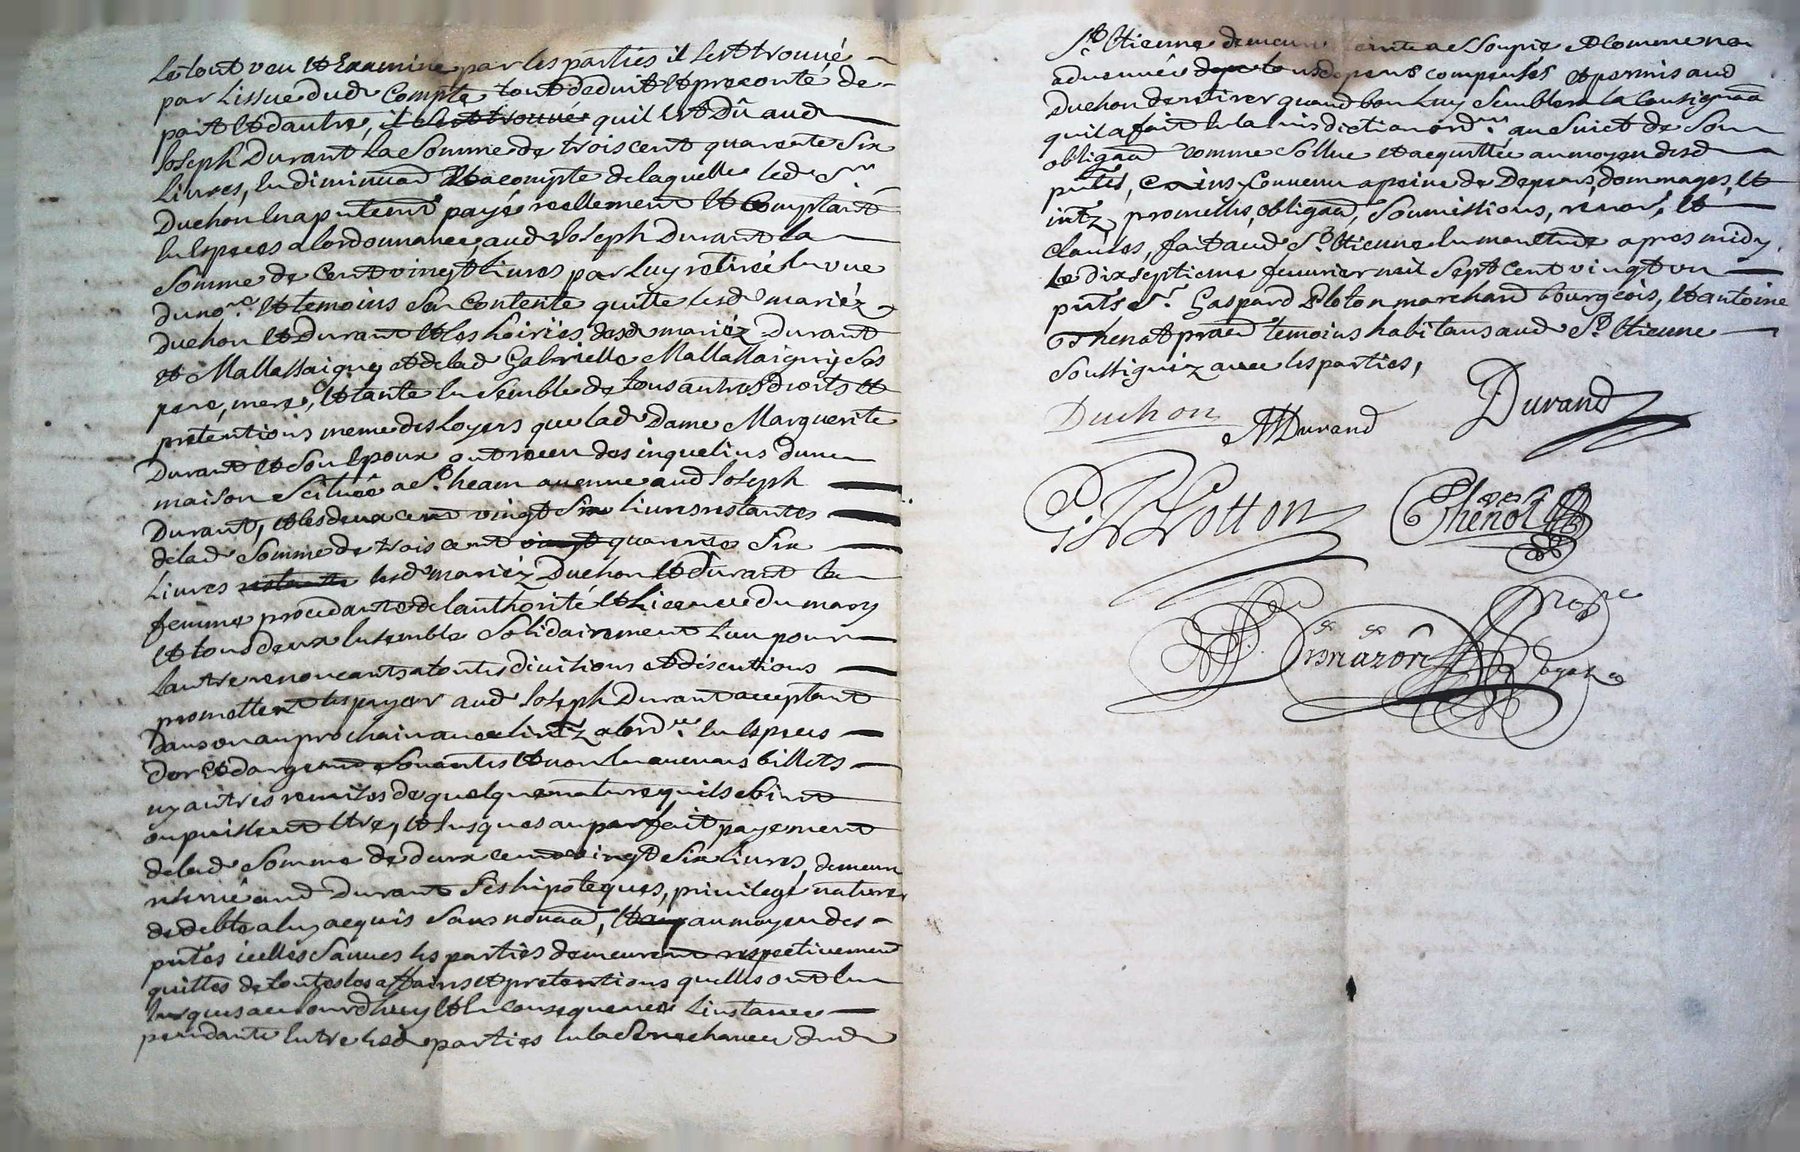 Le tout veu et Examiné par les parties il s'est trouvé
par L'issue dud. Compte tout deduit et preconté de
part et dautre, il s'est trouvé quil est Dû aud.
Joseph Durant La Somme de trois cent quarente Six
Livres, En diminuaõn Et acompte de laquelle led. Sr.
Duchon En a puttemt. payé reellement et Comptant
En Especes a lordonnance, aud. Joseph Durant La
Somme de Cent vingt Livres par Luy retirée En vue
du nore. et temoins S'en Contente quitte lesd. mariéz
Duchon et Durant et les hoiries desd. mariéz Durant
et Mallassaigny et de lad. Gabrielle Mallassaigny Ses
pere, mere, et tante En Semble de tous autres droits et
pretentions meme des Loyers que lad. Dame Marguerite
Durant et Son Epoux ont receu des inquelins dune
maison Scituée a St. heam avenue aud. Joseph
Durant, et les deux cent vingt Six Livres restantes
de lad. Somme de trois cent vingt quarente Six
Livres restante lesd. mariéz Duchon et Durant La
femme procedante de lauthorité et Licence du mary
et tous deux Ensemble Solidairement Lun pour
Lautre renonçants a toutes divitions et discutions
promettent les payer aud. Joseph Durant acceptant
Dans un an prochain avec Lintz. a lordce. En Especes
d'or et dargent Sonantes et non En aucuns billets
ny autres remises de quelque nature quils Soint
ou puissent Etre, et Jusques au parfait payement
de lad. Somme de deux cent vingt Six Livres, demeure
reservé aud. Durant Ses hipoteques, privilege nature
de debte a luy acquis Sans novaõn, Et au moyen des
pntes icelles Sauves les parties demeurent respectivement
quittes de toutes les affaires et pretentions quelles ont Eu
Jusques aujourdhuy et En Consequence Linstance
pendante Entre lesd. parties En la Senechaucée dud.
St. Etienne demeure Eteinte assoupie et Comme non
advenuée depe tous depens compensés et permis aud.
Duchon de retirer quand bon Luy Semblera La Consignaõn
quil a fait En la Jurisdiction ordre. au Suiet de Son
obligaõn comme Sollue et acquittée au moyen desd.
pntes, Ainsy Convenu a peine de Depens, dommages, et
intz, promesses, obligaõn, Soumissions, renonc. et
Clauses, fait aud. St. Etienne En mon Etude apres midy,
Le dix septieme fevvrier mil Sept Cent vingt un
pnts Sr. Gaspard Ploton marchand bourgeois, et antoine
Thenot praõn temoins habitans aud. St. Etienne
Soussignéz avec les parties,
Duchon
M Durand
Durand
G. Plotton
Thenot